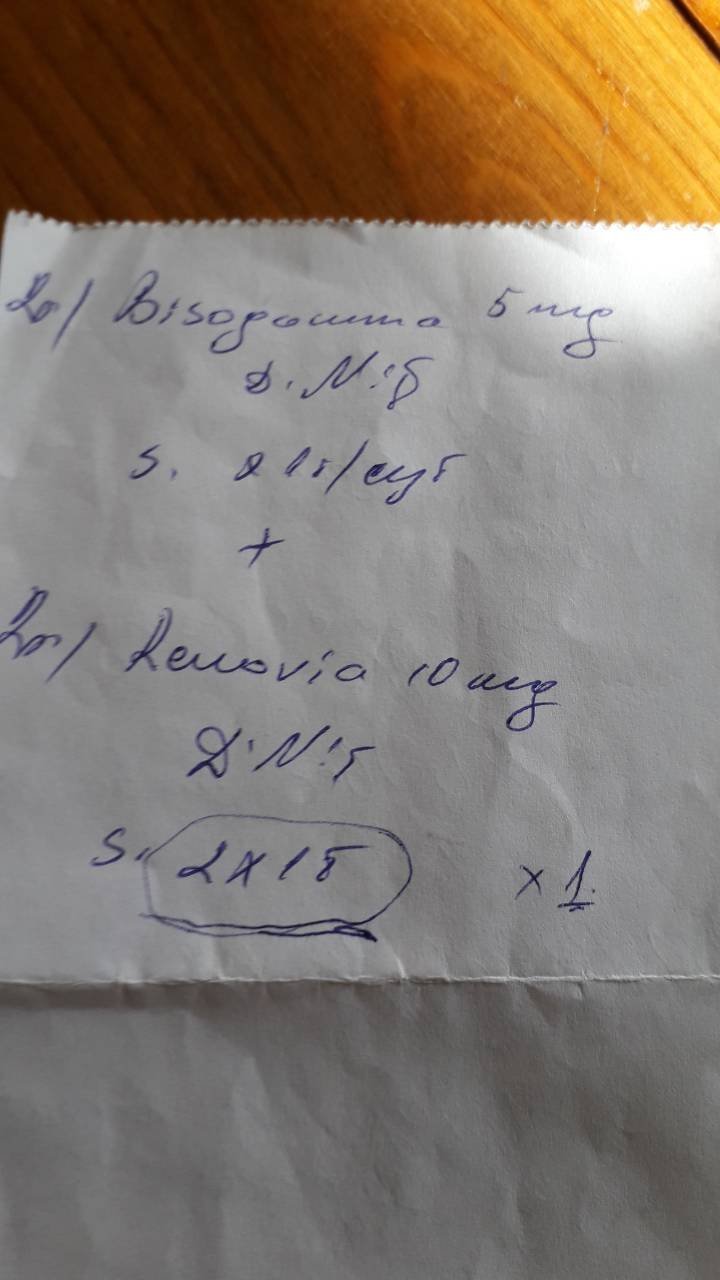 Rp/ Bisogamma 5 mg
D. N:5
S. 1т/сут
+
Rp/ Renovia 10 mg
D. N:5
S. 2x1т x 1.